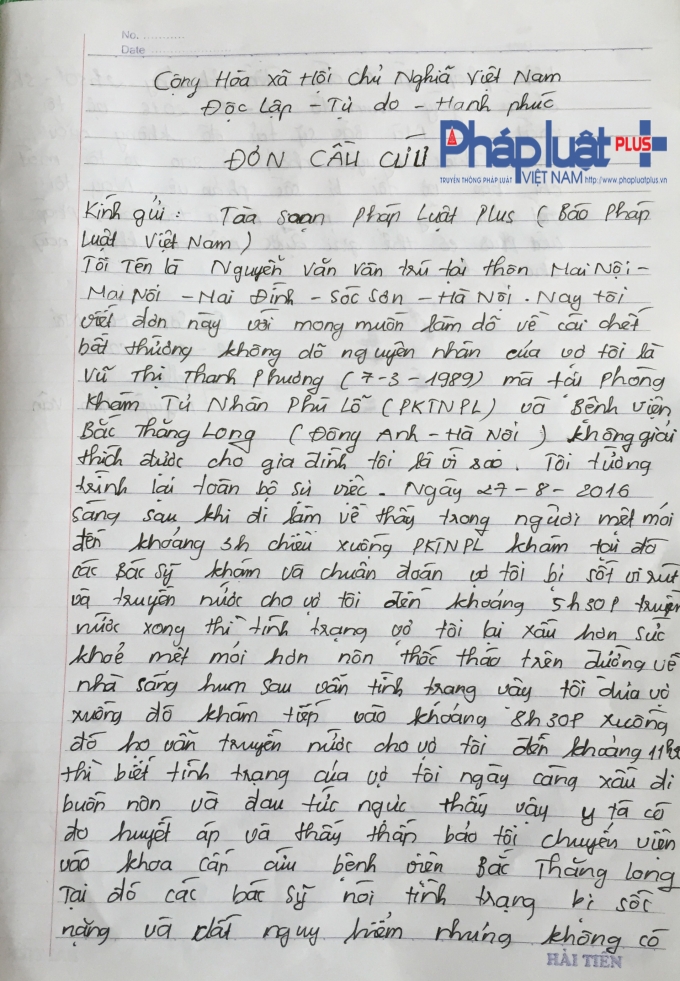 No. ............
Date ....................
Cộng Hòa xã Hội chủ Nghĩa Việt Nam
Độc Lập - Tự do - Hanh phúc
ĐƠN CẦU CỨU
Pháp luật PLUS
TRUYỀN THÔNG PHÁP LUẬT VIỆT NAM http://www.phapluatplus.vn
Kính gửi : Tòa soạn pháp Luật Plus ( Báo Pháp
Luật Việt Nam )
Tôi Tên là Nguyễn văn vân trú tại thôn Mai Nội -
Mai Nôi - Mai Đình - Sóc Sơn - Hà Nội . Nay tôi
viết đơn này với mong muốn làm dõ về cái chết
bất thường không dõ nguyên nhân của vợ tôi là
Vũ Thị Thanh Phương ( 7-3-1989) mà tại Phòng
Khám Tư Nhân Phù Lỗ (PKTNPL) và Bệnh viện
Bắc Thăng Long ( Đông Anh - Hà Nội ) không giải
thích được cho gia đình tôi là vì sao . Tôi tường
trình lại toàn bộ sự việc . Ngày 27-8-2016
sáng sau khi đi làm về thấy trong người mệt mỏi
đến khoảng 3h chiều xuống PKTNPL khám tại đó
các Bác Sỹ khám và chuẩn đoán vợ tôi bị sốt vi rút
và truyền nước cho vợ tôi đến khoảng 5h30P truyền
nước xong thì tình trạng vợ tôi lại xấu hơn sức
khoẻ mệt mỏi hơn nôn thốc tháo trên đường về
nhà sáng hum sau vẫn tình trang vây tôi đưa vợ
xuống đó khám tiếp vào khoảng 8h30P xuống
đó họ vẫn truyền nước cho vợ tôi đến khoảng
thì biết tình trạng của vợ tôi ngày càng xấu đi
buồn nôn và đau tức ngực thấy vậy y tá có
đo huyết áp và thấy thấp bảo tôi chuyển viện
vào khoa cấp cứu bệnh viên Bắc Thăng Long
Tại đó các bác sỹ nói tình trạng bị sốc
nặng và dất nguy hiểm nhưng không có
HẢI TIẾN